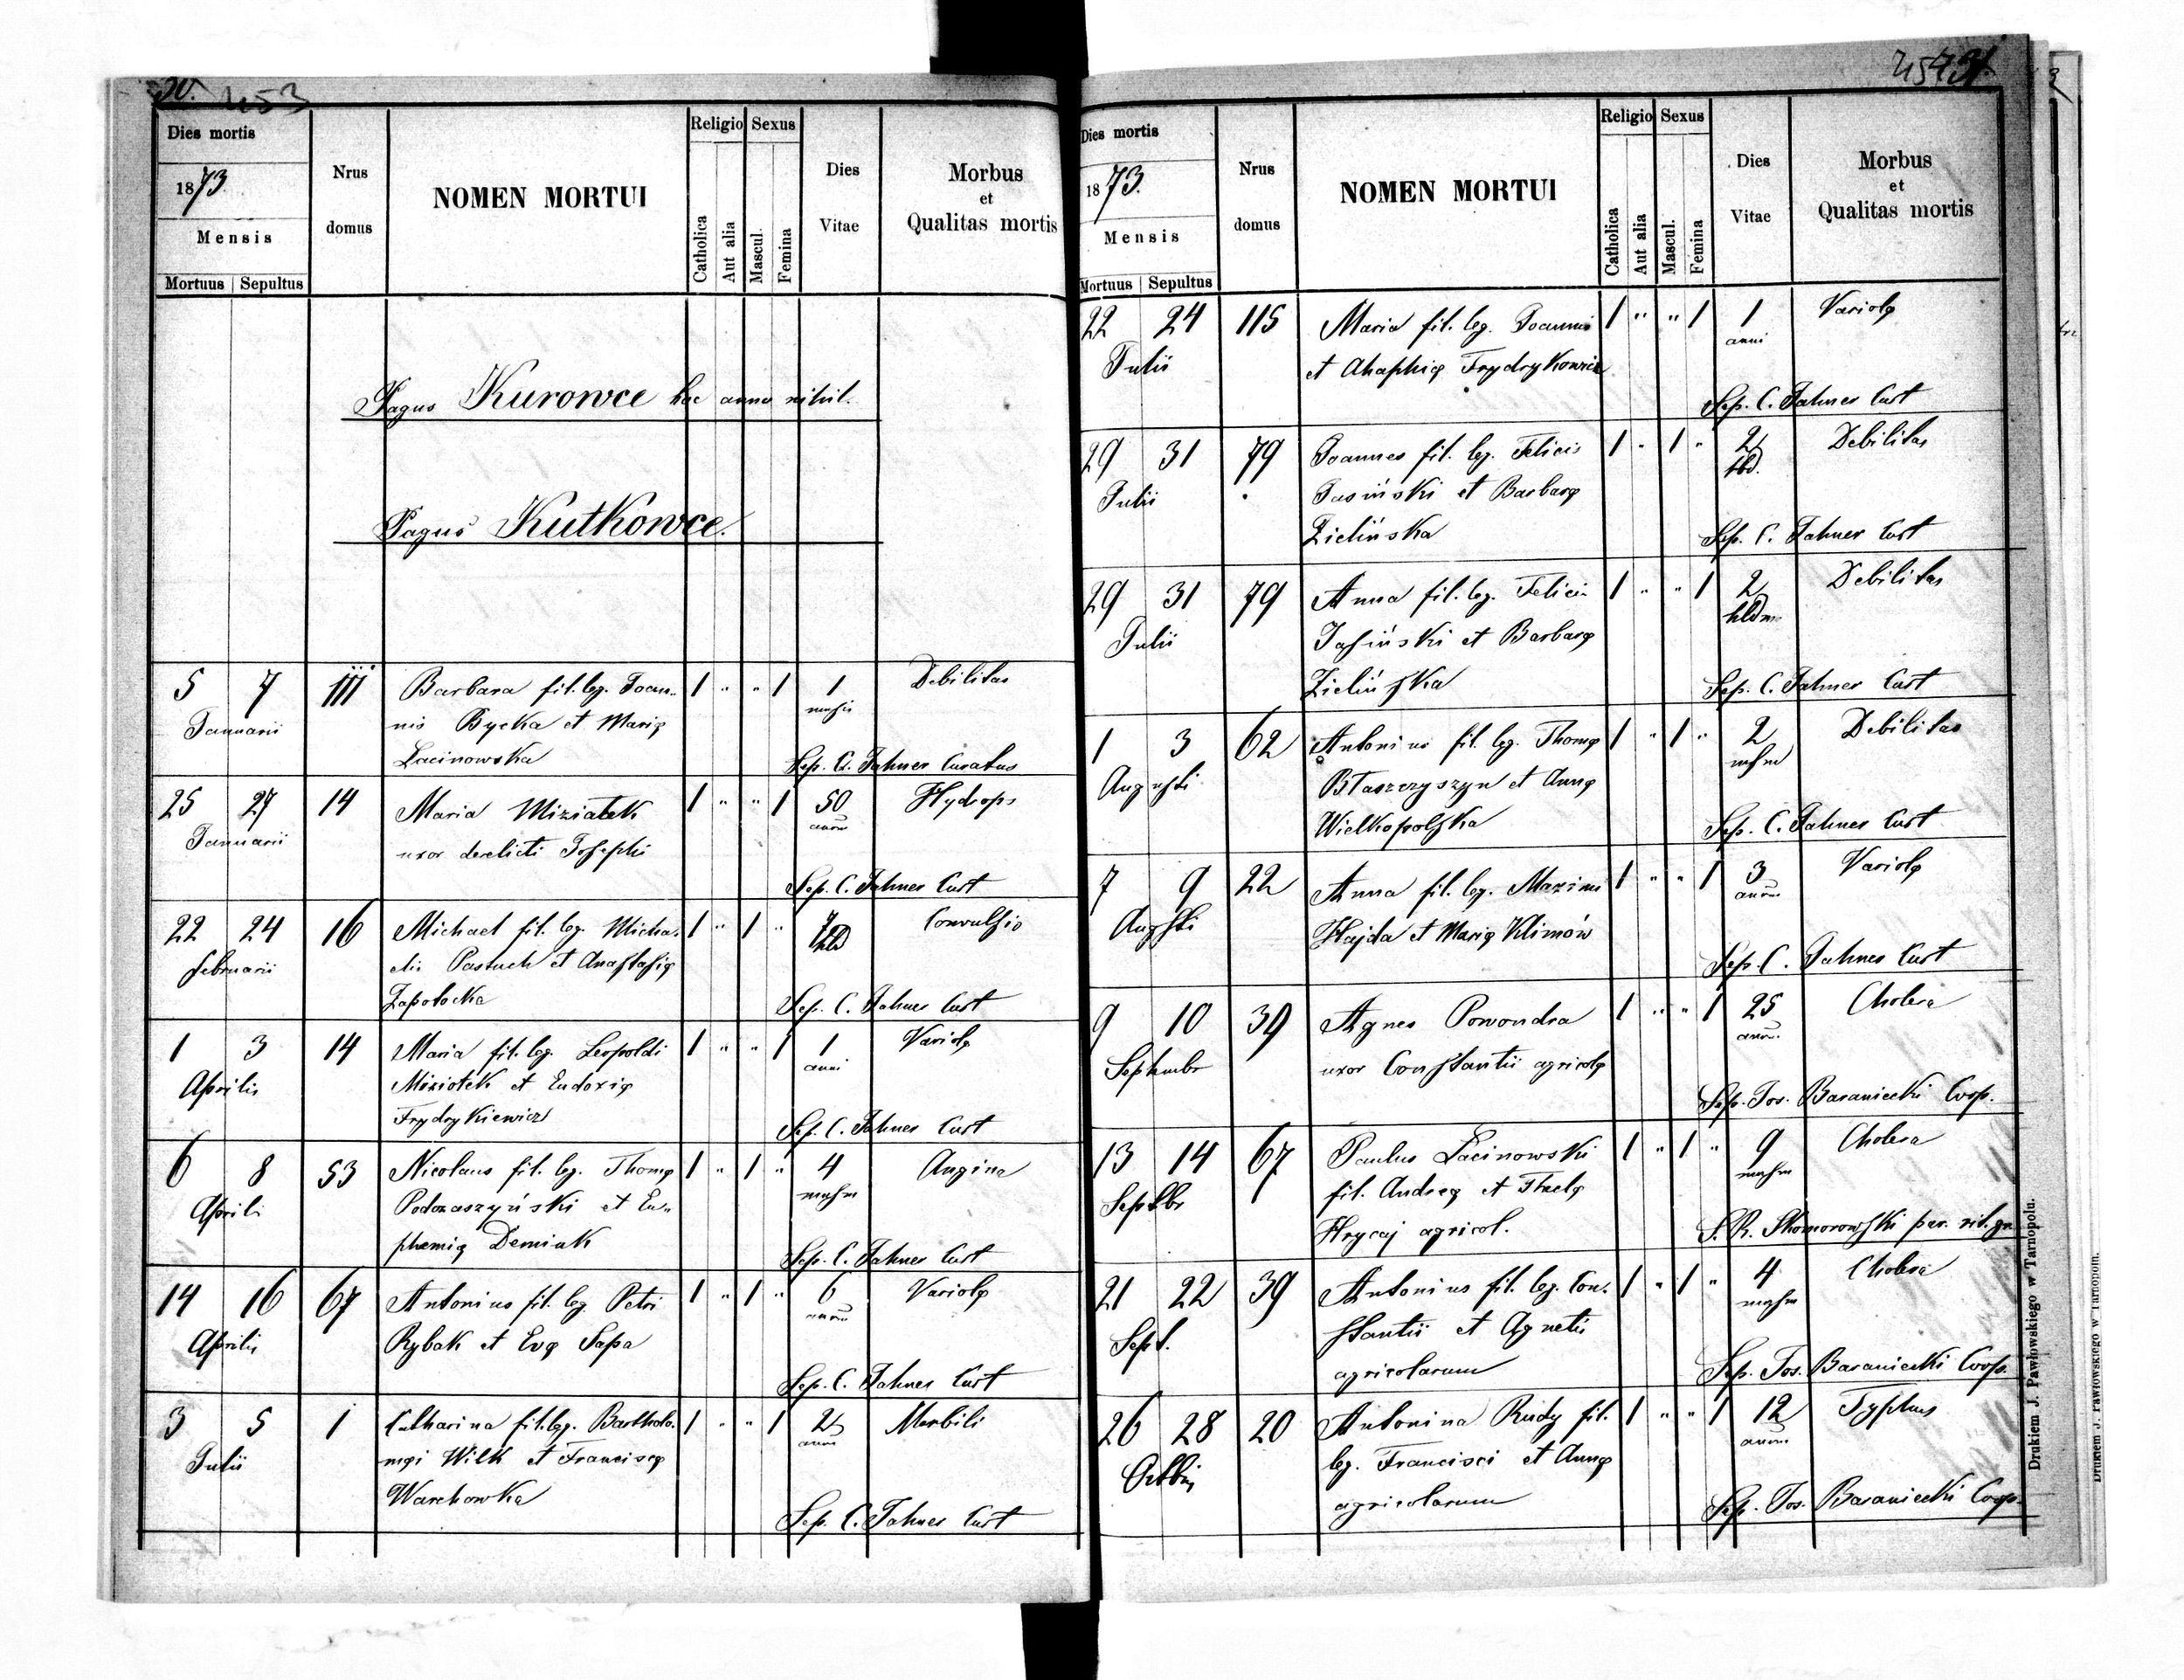 30. 453
Dies mortis
1873.
Mensis
Mortuus Sepultus
Nrus domus
NOMEN MORTUI
Religio
Catholica
Aut alia
Sexus
Mascul.
Femina
Dies Vitae
Morbus
et
Qualitas mortis
Pagus Kurowce hoc anno nihil.
Pagus Kutkowce.
5 7 111 Barbara fil. leg. Joan- 1 " " 1 1 Debilitas
Januarii nis Bycka et Marię mensis
Łacinowska Sep. C. Jahner Curatus
25 27 14 Maria Miziałek 1 " " 1 50 Hydrops
Januarii uxor derelicti Josephi annorū
Sep. C. Jahner Curt
22 24 16 Michael fil. leg. Micha- 1 " 1 " Convulsio
Februarii elis Pastuch et Anastasię
Zapotocka Sep. C. Jahner Curt
1 3 14 Maria fil. leg. Leopoldi 1 " " 1 1 Variolę
Aprilis Miziołek et Eudoxię anni
Frydrykiewicz Sep. C. Jahner Curt
6 8 53 Nicolaus fil. leg. Thomę 1 " 1 " 4 Angina
Aprilis Podoraszyński et Eu- mensium
phemię Demiak Sep. C. Jahner Curt
14 16 67 Antonius fil. leg. Petri 1 " 1 " 6 Variolę
Aprilis Rybak et Evę Sapa annorū
Sep. C. Jahner Curt
3 5 1 Catharina fil. leg. Bartholo- 1 " " 1 2 Morbili
Julii męi Wilk et Franciscę
Warchowka
Sep. C. Jahner Curt
454 31.
Dies mortis
1873.
Mensis
Mortuus Sepultus
Nrus domus
NOMEN MORTUI
Religio
Catholica
Aut alia
Sexus
Mascul.
Femina
Dies Vitae
Morbus
et
Qualitas mortis
22 24 115 Maria fil. leg. Joannis 1 " " 1 1 Variolę
Julii et Ahaphię Frydrykowicz anni
Sep. C. Jahner Curt
29 31 79 Joannes fil. leg. Felicis 1 " 1 " 2 Debilitas
Julii Jasiński et Barbarę hbd.
Zielińska Sep. C. Jahner Curt
29 31 79 Anna fil. leg. Felicis 1 " " 1 2 Debilitas
Julii Jasiński et Barbarę hbdm
Zielińska Sep. C. Jahner Curt
1 3 62 Antonius fil. leg. Thomę 1 " 1 " 2 Debilitas
Augusti Błaszczyszyn et Annę
Wielkopolska Sep. C. Jahner Curt
7 9 22 Anna fil. leg. Maximi 1 " " 1 3 Variolę
Augusti Hajda et Marię Klimów annorū
Sep. C. Jahner Curt
9 10 39 Agnes Powondra 1 " " 1 25 Cholera
Septembr uxor Constantii agricolę annorū
Sep. Jos. Baraniecki Coop.
13 14 67 Paulus Łacinowski 1 " 1 " 9 Cholera
Septbr fil. Andreę et Theclę
Hrycaj agricol. S. R. Skomorowski par. rit. gr.
21 22 39 Antonius fil. leg. Con- 1 " 1 " 4 Cholera
Sept. stantii et Agnetis
agricolarum Sep. Jos. Baraniecki Coop.
26 28 20 Antonina Rudy fil. 1 " " 1 12 Typhus
Octbris leg. Francisci et Annę annorū
agricolarum Sep. Jos. Baraniecki Coop.
Drukiem J. Pawłowskiego w Tarnopolu.
Drukiem J. Pawłowskiego w Tarnopolu.